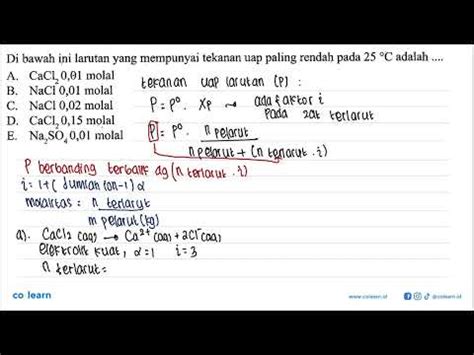 Di bawah ini larutan yang mempunyai tekanan uap paling rendah pada 25 °C adalah ....
A. CaCl₂ 0,01 molal
B. NaCl 0,01 molal
C. NaCl 0,02 molal
D. CaCl₂ 0,15 molal
E. Na₂SO₄ 0,01 molal
tekanan uap larutan (P) :
P = P° . Xp → ada faktor i
pada zat terlarut
P = P° . n pelarut
n pelarut + (n terlarut . i)
P berbanding terbalik dg (n terlarut . i)
i = 1 + (jumlah ion - 1) α
molalitas = n terlarut
m pelarut (kg)
a). CaCl₂ (aq) → Ca²⁺ (aq) + 2Cl⁻ (aq)
elektrolit kuat, α = 1 i = 3
n terlarut =
co learn
www.colearn.id
@colearn.id